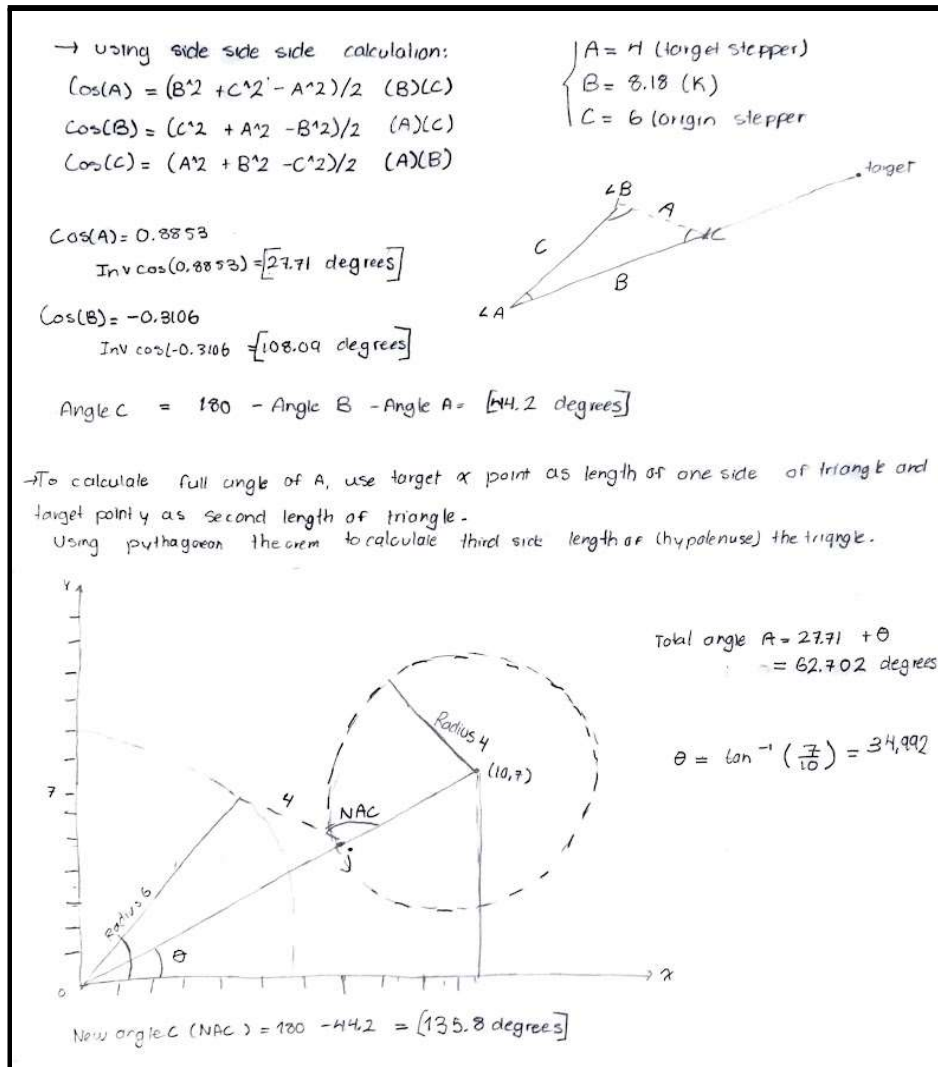 → using side side side calculation:
Cos(A) = (B^2 + C^2 - A^2)/2 (B)(C)
Cos(B) = (C^2 + A^2 - B^2)/2 (A)(C)
Cos(C) = (A^2 + B^2 - C^2)/2 (A)(B)
A = 4 (target stepper)
B = 8.18 (K)
C = 6 (origin stepper
target
∠B
A
C
∠C
B
∠A
Cos(A) = 0.8853
Inv cos(0.8853) = [27.71 degrees]
Cos(B) = -0.3106
Inv cos(-0.3106 = [108.09 degrees]
Angle C = 180 - Angle B - Angle A = [44.2 degrees]
→To calculate full angle of A, use target x point as length of one side of triangle and
target point y as second length of triangle.
Using pythagorean theorem to calculate third side length of (hypotenuse) the triangle.
Y
Total angle A = 27.71 + θ
= 62.702 degrees
Radius 4
(10,7)
θ = tan⁻¹ (7/10) = 34,992
7
4
NAC
j
Radius 6
θ
0
x
New angle C (NAC) = 180 - 44.2 = [135.8 degrees]